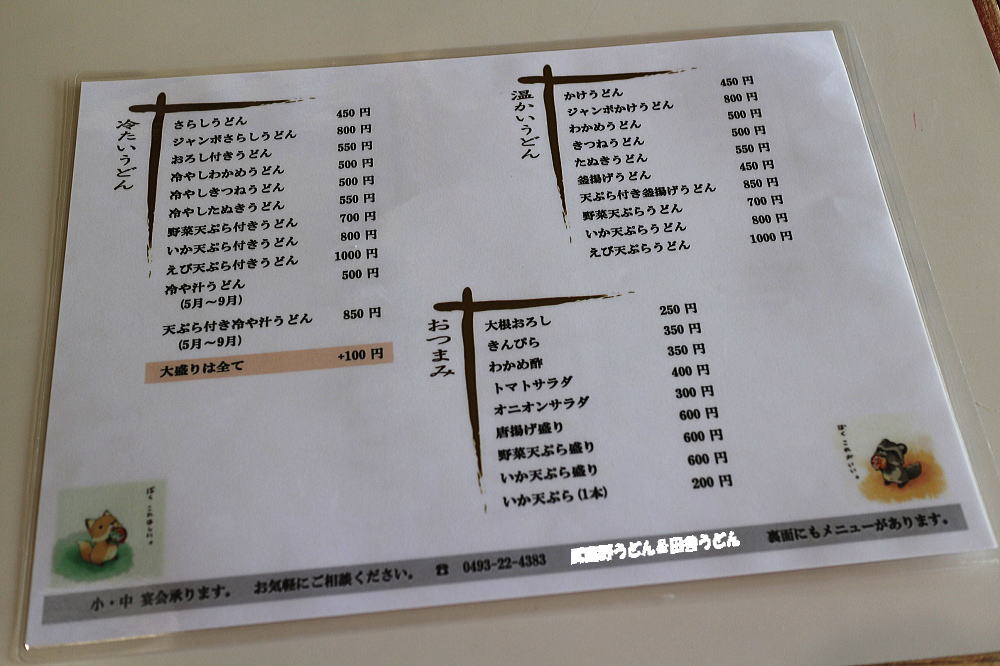 冷たいうどん
さらしうどん 450 円
ジャンボさらしうどん 800 円
おろし付きうどん 550 円
冷やしわかめうどん 500 円
冷やしきつねうどん 500 円
冷やしたぬきうどん 550 円
野菜天ぷら付きうどん 700 円
いか天ぷら付きうどん 800 円
えび天ぷら付きうどん 1000 円
冷や汁うどん 500 円
(5月～9月)
天ぷら付き冷や汁うどん 850 円
(5月～9月)
大盛りは全て +100 円
温かいうどん
かけうどん 450 円
ジャンボかけうどん 800 円
わかめうどん 500 円
きつねうどん 500 円
たぬきうどん 550 円
釜揚げうどん 450 円
天ぷら付き釜揚げうどん 850 円
野菜天ぷらうどん 700 円
いか天ぷらうどん 800 円
えび天ぷらうどん 1000 円
おつまみ
大根おろし 250 円
きんぴら 350 円
わかめ酢 350 円
トマトサラダ 400 円
オニオンサラダ 300 円
唐揚げ盛り 600 円
野菜天ぷら盛り 600 円
いか天ぷら盛り 600 円
いか天ぷら(1本) 200 円
小・中 宴会承ります。 お気軽にご相談ください。 ☎ 0493-22-4383 武蔵野うどん&田舎うどん 裏面にもメニューがあります。